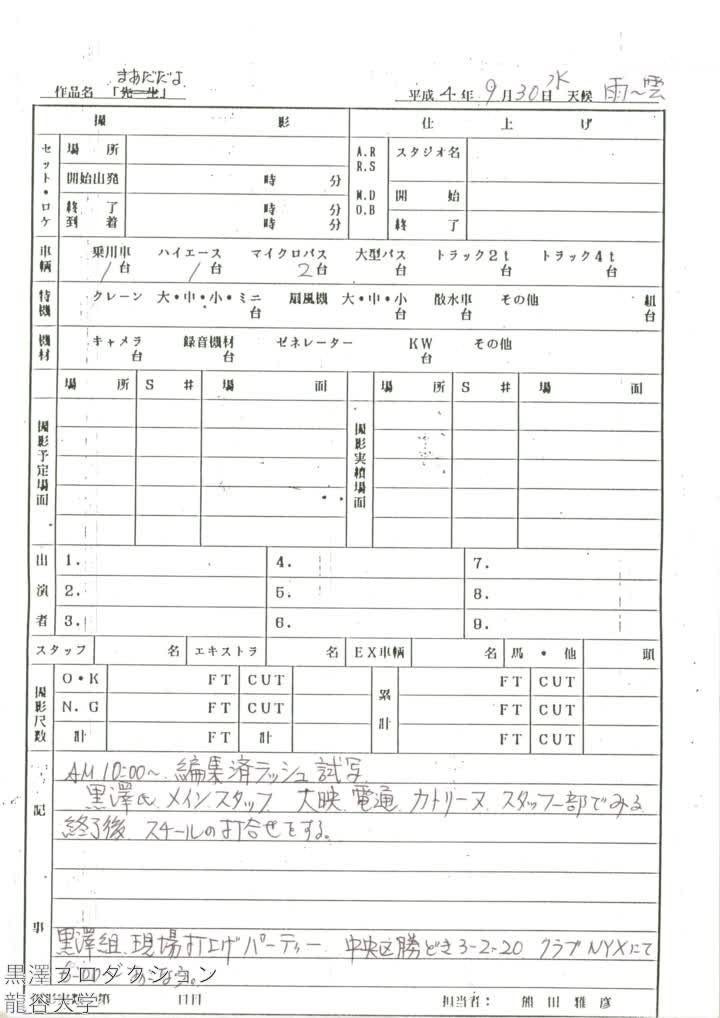 まあだだよ
作品名 「先生」
平成 4 年 9 月 30 日 水 天候 雨~雲
撮 影
仕 上 げ
セット・ロケ
場 所
開始出発 時 分
終 了 時 分
到 着 時 分
A.R
R.S
M.D
O.B
スタジオ名
開 始
終 了
車輌
乗用車 ハイエース マイクロバス 大型バス トラック2t トラック4t
1台 1台 2台 台 台 台
特機
クレーン 大・中・小・ミニ 扇風機 大・中・小 散水車 その他 組
台 台 台 台
機材
キャメラ 録音機材 ゼネレーター KW その他
台 台 台
撮影予定場面
場 所 S # 場 面
撮影実績場面
場 所 S # 場 面
出演者
1. 4. 7.
2. 5. 8.
3. 6. 9.
スタッフ 名 エキストラ 名 EX車輌 名 馬・他 頭
撮影尺数
O・K FT CUT 累計 FT CUT
N.G FT CUT FT CUT
計 FT 計 FT CUT
記事
AM10:00~ 編集済ラッシュ試写
黒澤氏、メインスタッフ 大映、電通、カトリーヌ、スタッフ一部でみる
終了後、スチールの打合せをする。
黒澤組 現場打上げパーティー 中央区勝どき3-2-20 クラブNYXにて
6:00
第 日目
担当者: 熊田雅彦
黒澤プロダクション
龍谷大学